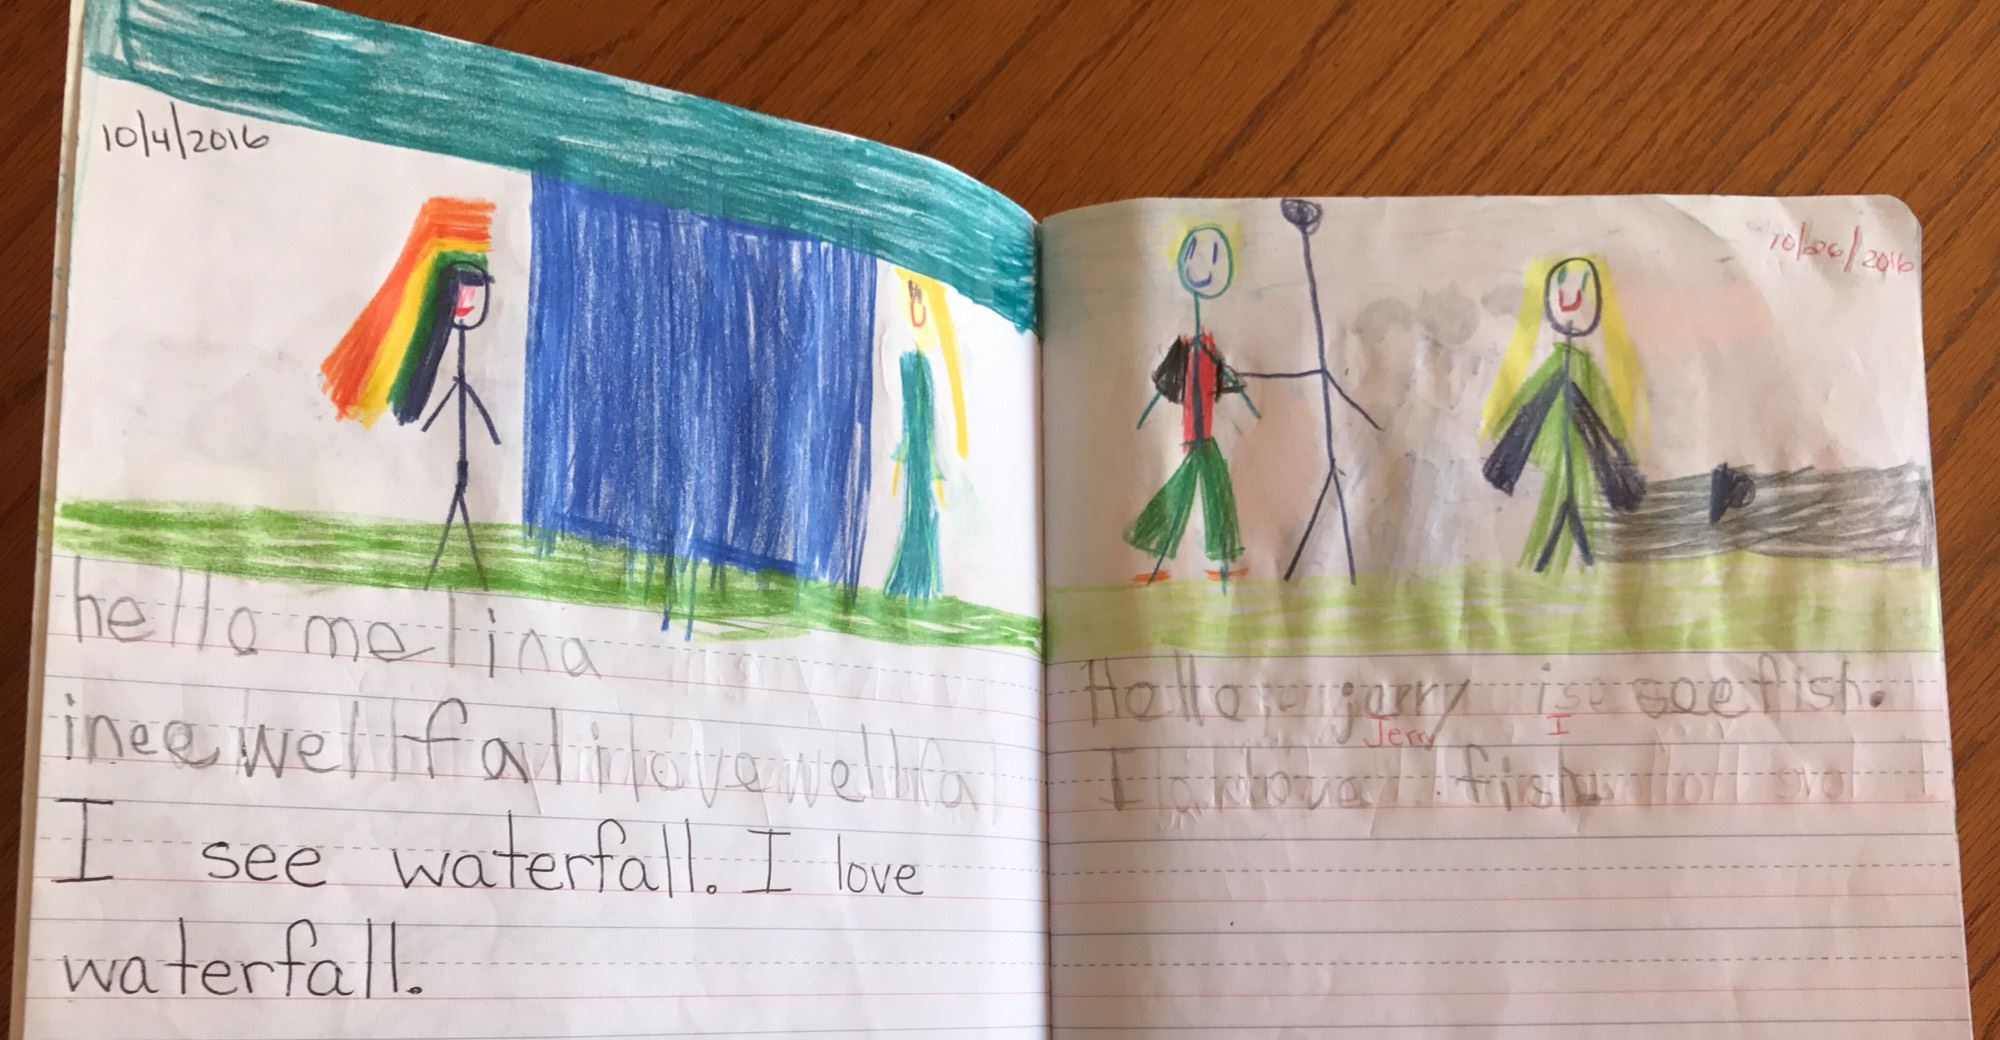 10/4/2016
hello melina
inee wellfal i love wellfa
I see waterfall. I love
waterfall.
10/06/2016
Hello jerry ise see fish.
Jerry I
I love fish